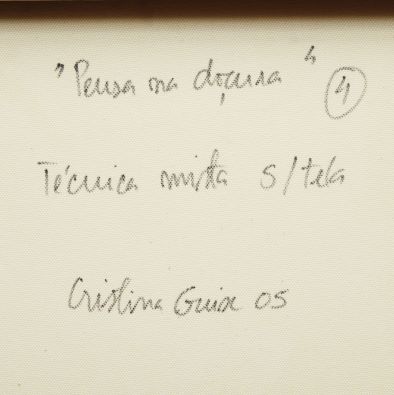 "Pensa na doçura" 4
Técnica mista s/tela
Cristina Guise 05